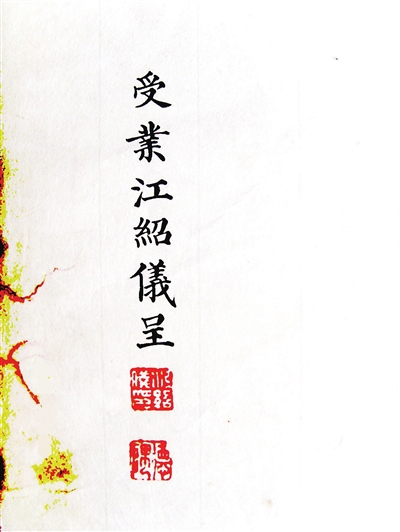 受業江紹儀呈